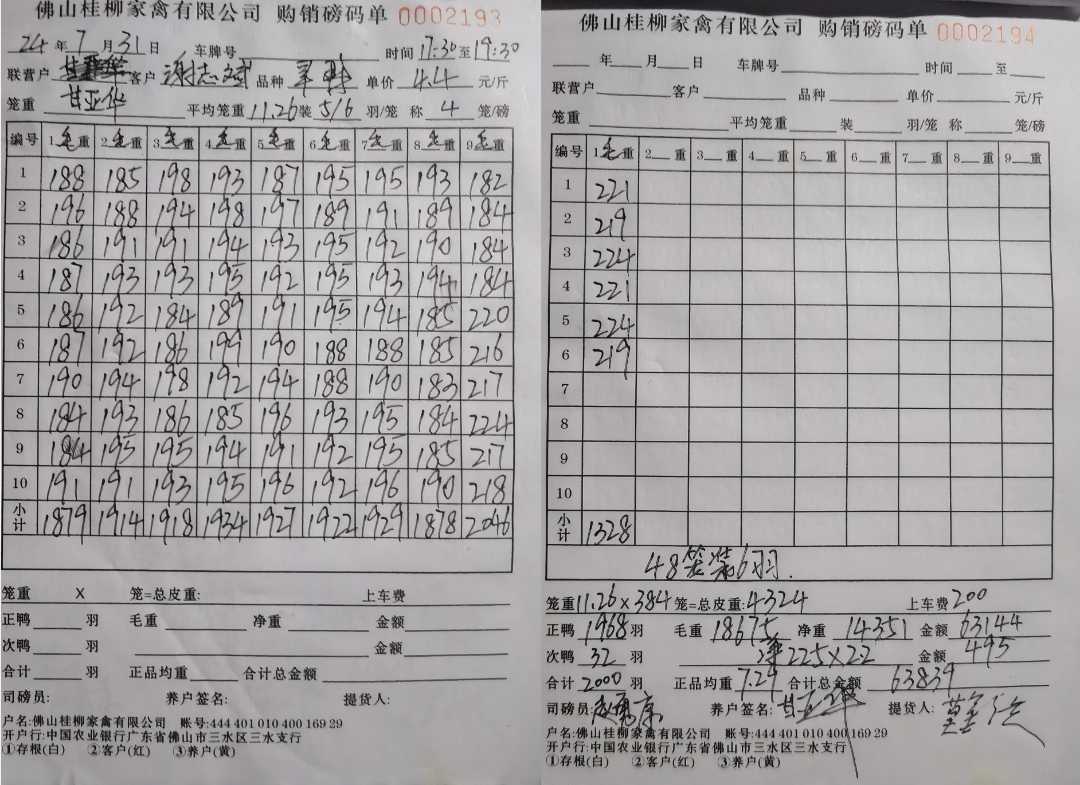 佛山桂柳家禽有限公司 购销磅码单 0002193
24年7月31日 车牌号 时间17:30至19:30
联营户 客户 谢志斌 品种 单价 4.4 元/斤
甘亚华
笼重 平均笼重11.26装5/6羽/笼 称 4 笼/磅
编号 1毛重 2毛重 3毛重 4毛重 5毛重 6毛重 7毛重 8毛重 9毛重
1 188 185 198 193 187 195 195 193 182
2 196 188 194 198 197 189 191 189 184
3 186 191 191 194 193 195 192 190 184
4 187 193 193 195 192 195 193 194 184
5 186 192 184 189 191 195 194 185 220
6 187 192 186 199 190 188 188 185 216
7 190 194 198 192 194 188 190 183 217
8 184 193 186 185 196 193 195 184 224
9 184 195 195 194 191 192 195 185 217
10 191 191 193 195 196 192 196 190 218
小计 1879 1914 1918 1934 1927 1922 1929 1878 2046
笼重 X 笼=总皮重: 上车费
正鸭 羽 毛重 净重 金额
次鸭 羽 金额
合计 羽 正品均重 合计总金额
司磅员: 养户签名: 提货人:
户名:佛山桂柳家禽有限公司 账号:444 401 010 400 169 29
开户行:中国农业银行广东省佛山市三水区三水支行
①存根(白) ②客户(红) ③养户(黄)
佛山桂柳家禽有限公司 购销磅码单 0002194
年 月 日 车牌号 时间 至
联营户 客户 品种 单价 元/斤
笼重 平均笼重 装 羽/笼 称 笼/磅
编号 1毛重 2 重 3 重 4 重 5 重 6 重 7 重 8 重 9 重
1 221
2 219
3 224
4 221
5 224
6 219
7
8
9
10
小计 1328
48笼装6羽.
笼重11.26×384笼=总皮重:4324 上车费200
正鸭 1968 羽 毛重 18675 净重 14351 金额 63144
次鸭 32 羽 净225×2.2 金额 495
合计 2000 羽 正品均重 7.29 合计总金额 63839
司磅员: 养户签名:甘亚华 提货人:
户名:佛山桂柳家禽有限公司 账号:444 401 010 400 169 29
开户行:中国农业银行广东省佛山市三水区三水支行
①存根(白) ②客户(红) ③养户(黄)